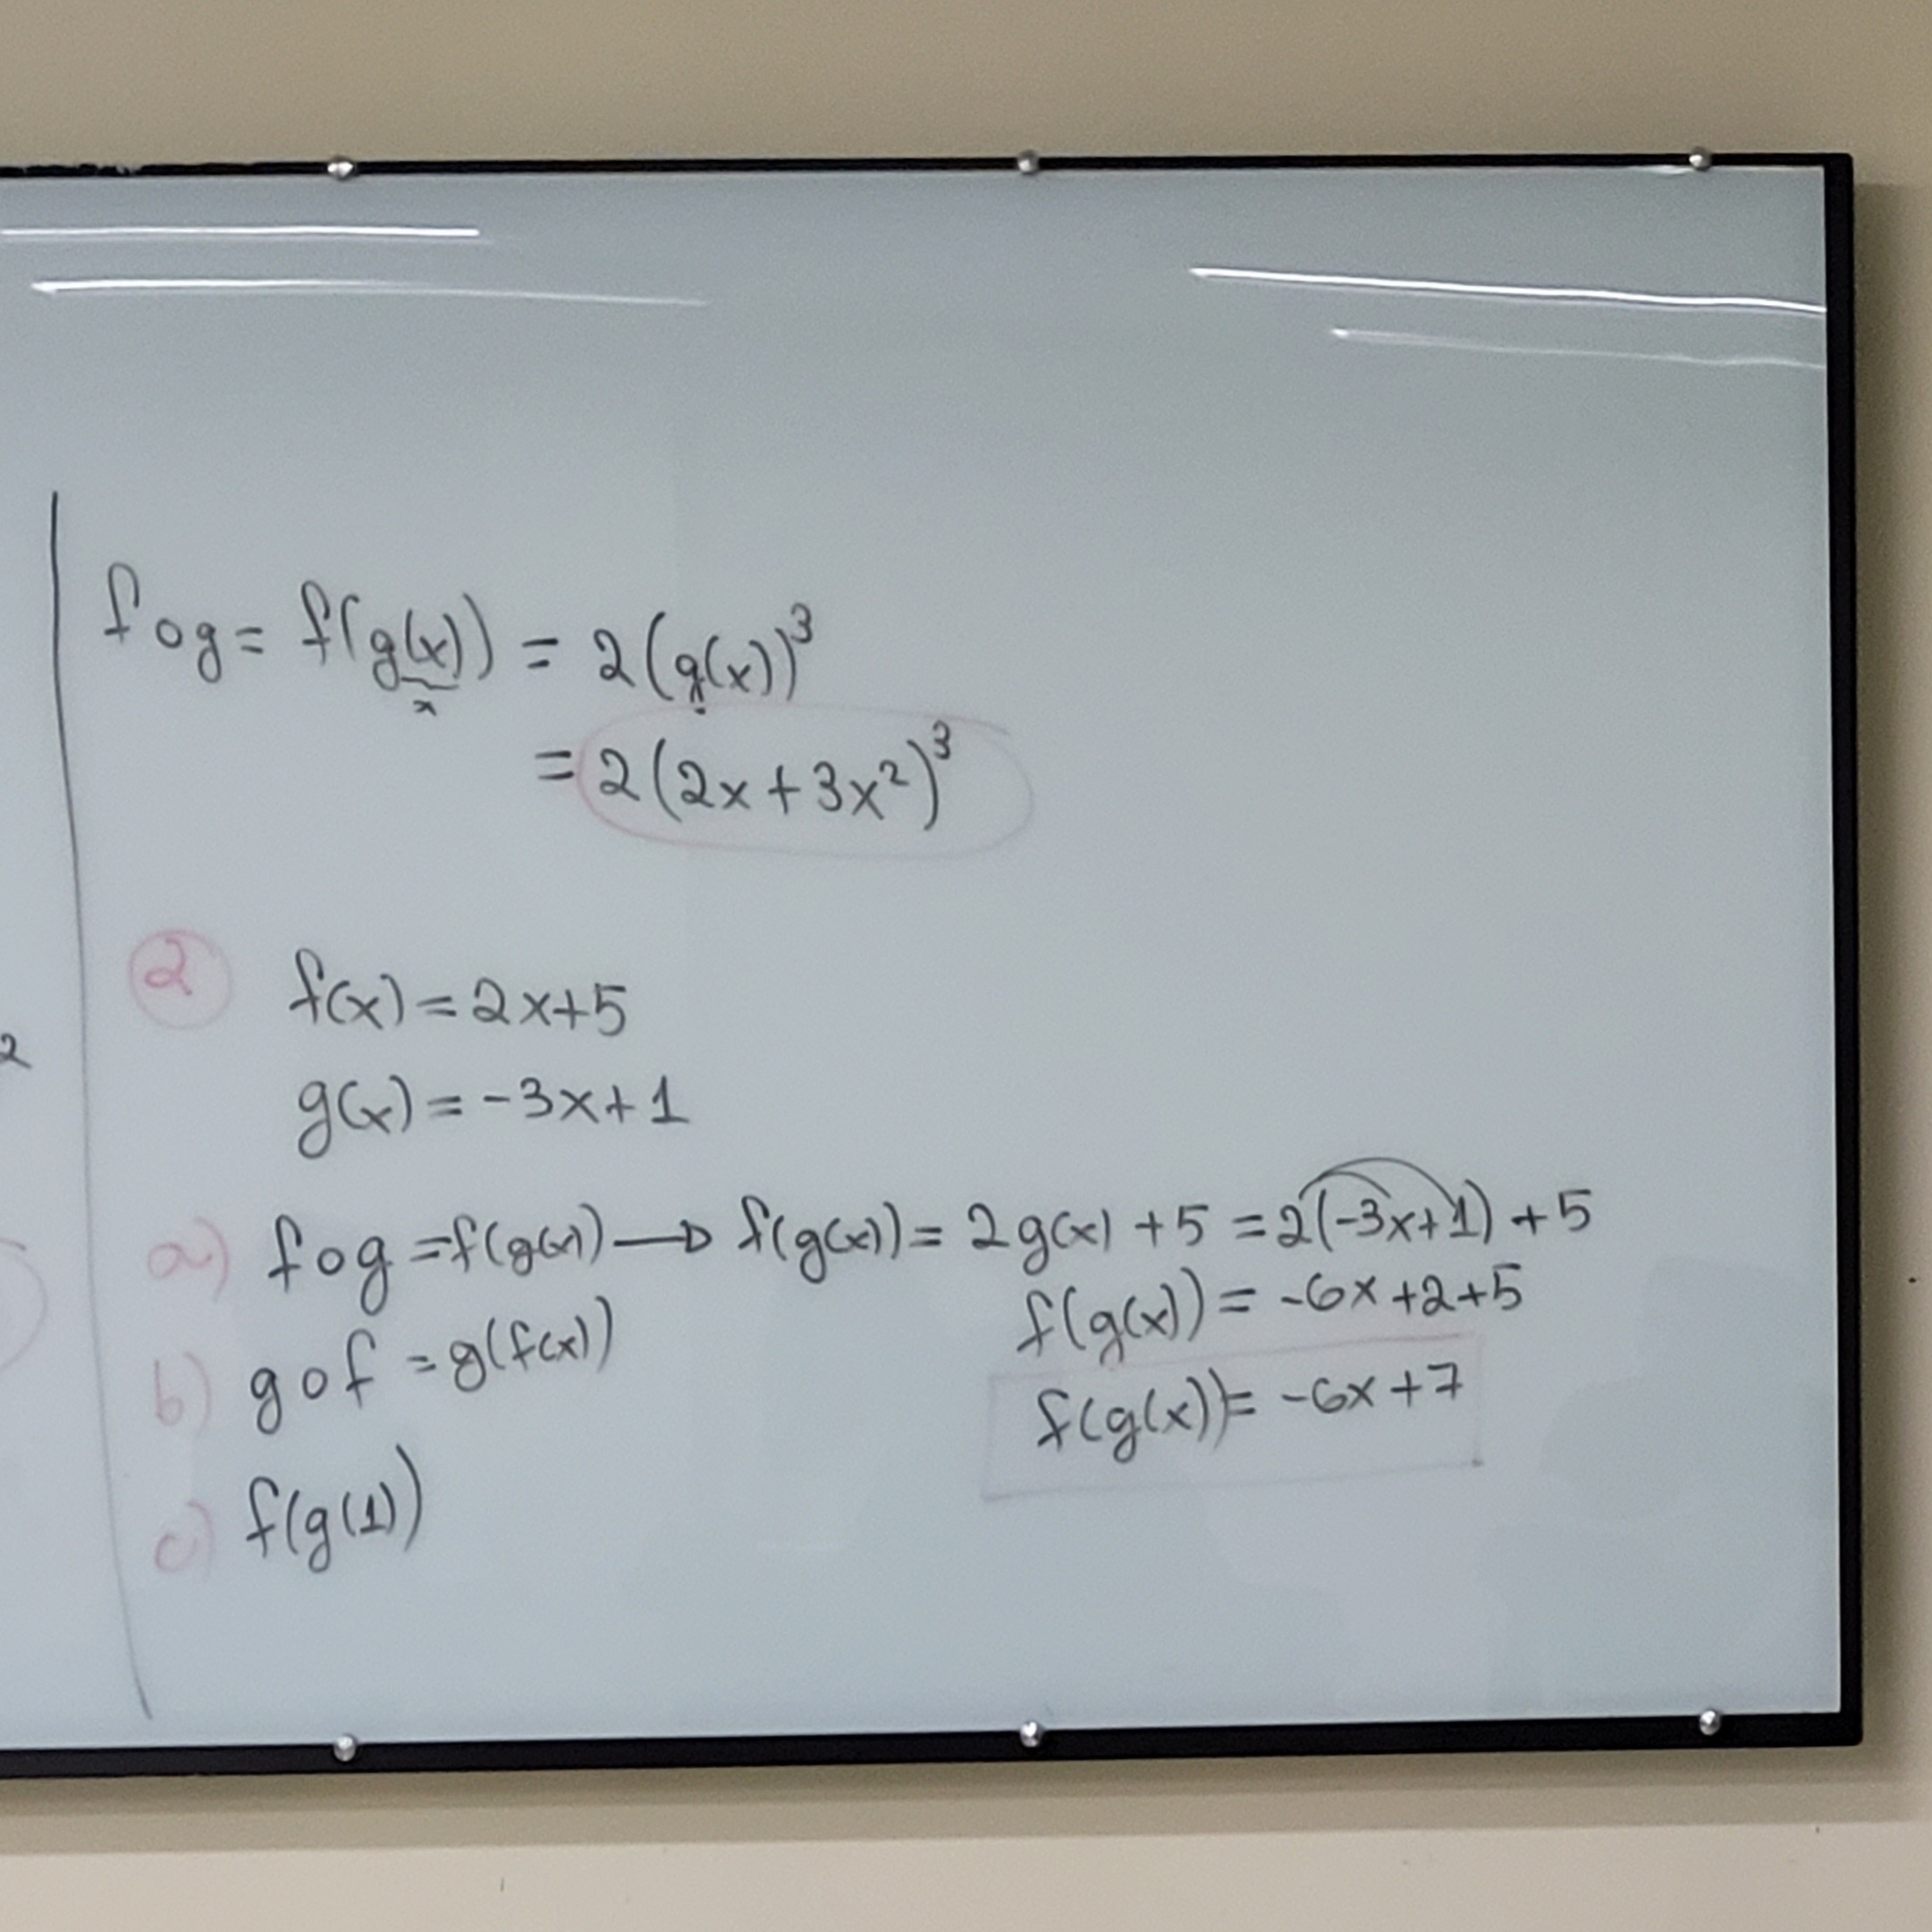 fog = f(g(x)) = 2(g(x))³
x
= 2(2x+3x²)³
2 f(x) = 2x+5
2
g(x) = -3x+1
a) fog = f(g(x)) → f(g(x)) = 2g(x) +5 = 2(-3x+1) +5
f(g(x)) = -6x +2+5
b) gof = g(f(x))
f(g(x)) = -6x+7
c) f(g(1))